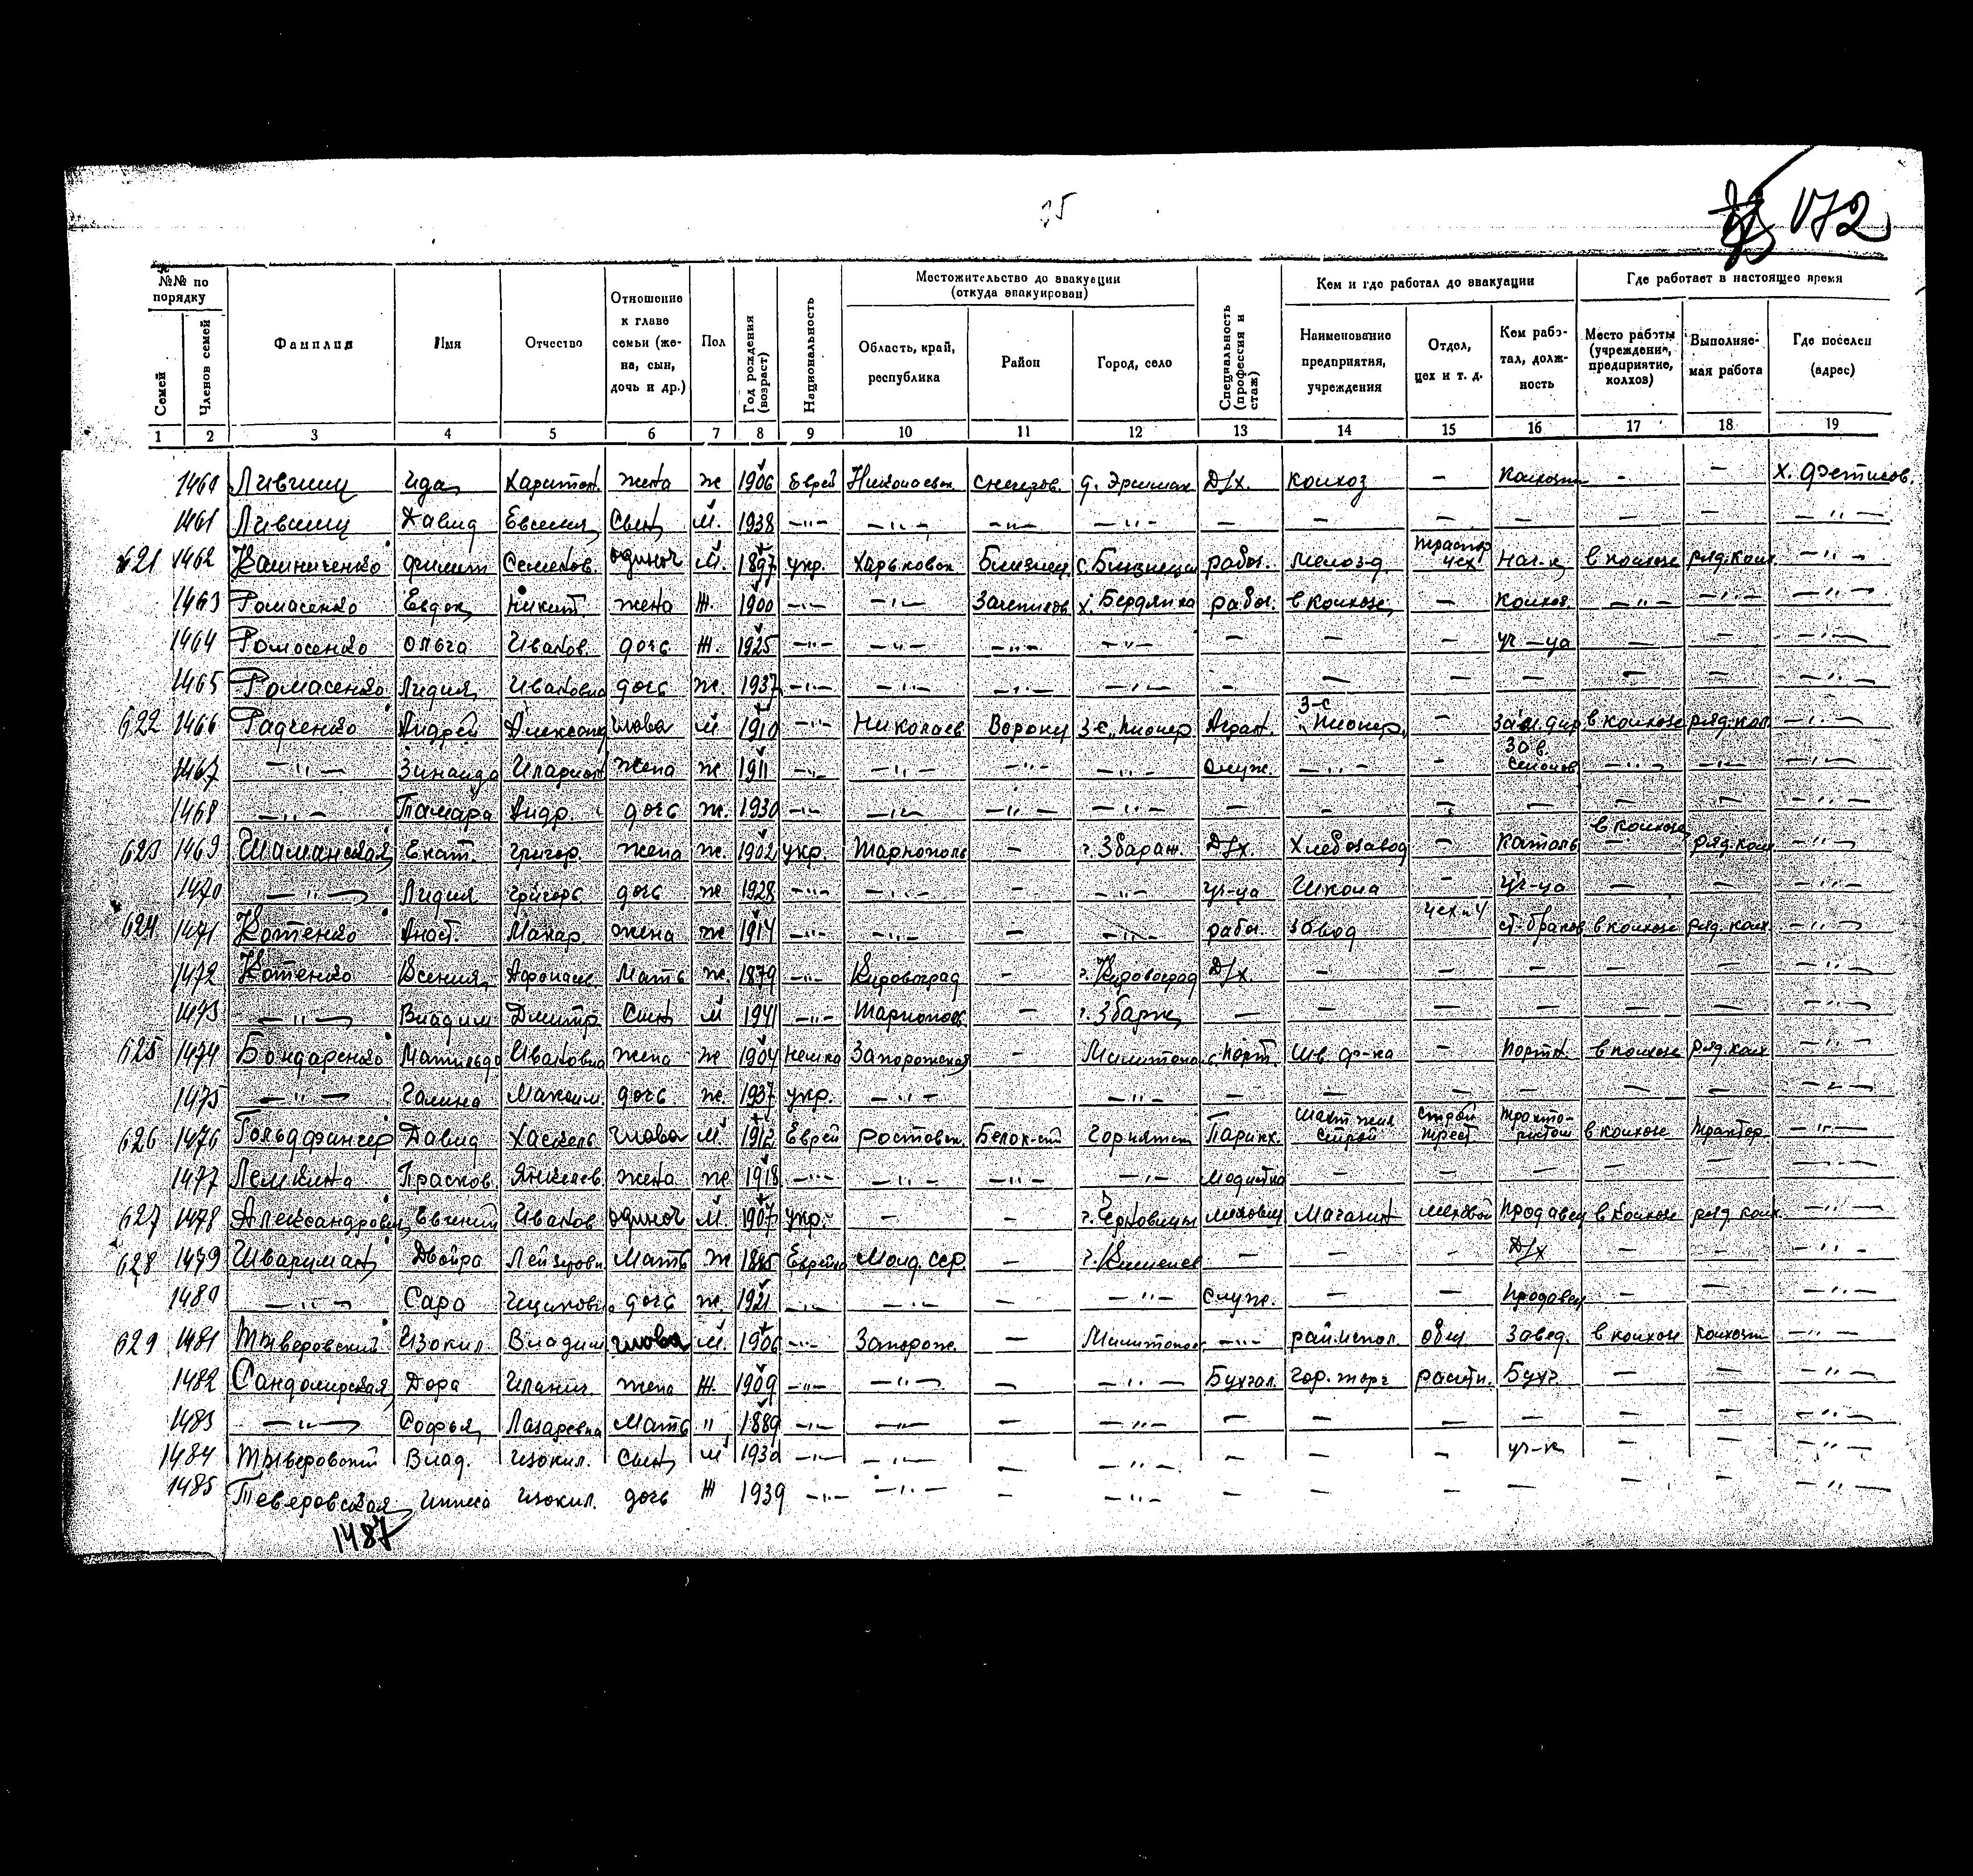 35
172
№№ по порядку
Семей
Членов семей
Фамилия
Имя
Отчество
Отношение к главе семьи (жена, сын, дочь и др.)
Пол
Год рождения (возраст)
Национальность
Местожительство до эвакуации (откуда эвакуирован)
Область, край, республика
Район
Город, село
Специальность (профессия и стаж)
Кем и где работал до эвакуации
Наименование предприятия, учреждения
Отдел, цех и т. д.
Кем работал, должность
Где работает в настоящее время
Место работы (учреждение, предприятие, колхоз)
Выполняемая работа
Где поселен (адрес)
1 2 3 4 5 6 7 8 9 10 11 12 13 14 15 16 17 18 19
1460 Лившиц Ида Харитон. жена ж 1906 Еврей Николаевск. Д/х. колхоз — — — х. Фетисов.
1461 Лившиц Давид Евсеев. Сын М. 1938 —"— —"— —"— —"— — — — — — — —"—
621 1462 Филип Семенов. одиноч М. 1897 укр. Харьковск Близнец. с. Близнецы рабоч. цех в колхозе ряд. колх —"—
1463 Ромасенко Евдок. Никит. жена Ж. 1900 —"— —"— Зачепилов х. Бердянка рабоч. в колхозе — колхоз. —"— —"— —"—
1464 Ромасенко Ольга Иванов. дочь Ж. 1925 —"— —"— —"— —"— — — — уч-ца — — —"—
1465 Ромасенко Лидия Ивановна дочь ж. 1937 —"— —"— —"— —"— — — — — — — —"—
622 1466 Радченко Андрей Александ глава М 1910 —"— Николаев Воронц З-с. "Пионер Агрон. З-с "Пионер" — Зам. дир в колхозе ряд. кол —"—
1467 —"— Зинаида Иларион жена ж 1911 —"— —"— —"— —"— служ. —"— — Зав. —"— —"— —"—
1468 —"— Тамара Андр. дочь ж. 1930 —"— —"— —"— —"— — — — — — — —"—
623 1469 Шаманская Екат. Григор. жена ж. 1902 укр. Тарнополь — г. Збараж. Д/х. Хлебозавод — в колхозе ряд. колх —"—
1470 —"— Лидия Григорь дочь ж 1928 —"— —"— — —"— уч-ца Школа — уч-ца — — —"—
624 1471 Котенко Анаст. Макар. жена ж 1914 —"— —"— — —"— рабоч. завод в колхозе ряд. колх. —"—
1472 Котенко Ксения Афонасьев. Мать ж. 1879 —"— Кировоград — г. Кировоград Д/х. — — — — — —"—
1473 —"— Владим Дмитр. Сын М 1941 —"— Тарнополь — г. Збараж — — — — — — —"—
625 1474 Бондаренко Матильда Ивановна жена ж 1904 немка Запорожская — Мелитополь порт. Шв. ф-ка — Портн. в колхозе ряд. колх —"—
1475 —"— Галина Максим. дочь ж. 1937 укр. —"— —"— — — — — — — —"—
626 1476 Гольдфингер Давид Хаскель глава М 1912 Еврей Ростовск. Белок-ий Горняцк Парикх. Шахт жил строй строй трест в колхозе трактор —"—
1477 Лемкина Прасков. Янкелев. жена ж 1918 —"— —"— —"— —"— модистка — — — — — —"—
627 1478 Александрович Евгений Иванов одиноч М. 1907 укр. — — г. Черновицы меховщ Магазин меховой Продавец в колхозе ряд. колх. —"—
628 1479 Шварцман Двойра Лейзеровн Мать Ж 1885 Еврейка Молд. сср. — г. Кишенев — — — Д/х — — —"—
1480 —"— Сара Ициковн. дочь ж. 1921 —"— —"— — —"— Служ. — — Продавец — — —"—
629 1481 Тыверовский Изокил. Владим глава М. 1906 —"— Запорож. — Мелитополь —"— райиспол. общ Завед. в колхозе колхозн —"—
1482 Сандомирская Дора жена Ж. 1909 —"— —"— — —"— Бухгал. Гор. торг Бухг. — — —"—
1483 —"— Софья Лазаревна Мать " 1889 —"— —"— — —"— — — — — — — —"—
1484 Тыверовский Влад. Изокил. Сын М 1930 —"— —"— — —"— — — — уч-к — — —"—
1485 Теверовская Изокил. дочь Ж 1939 —"— —"— — —"— — — — — — — —"—
1487